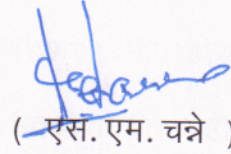 ( एस. एम. चन्ने )